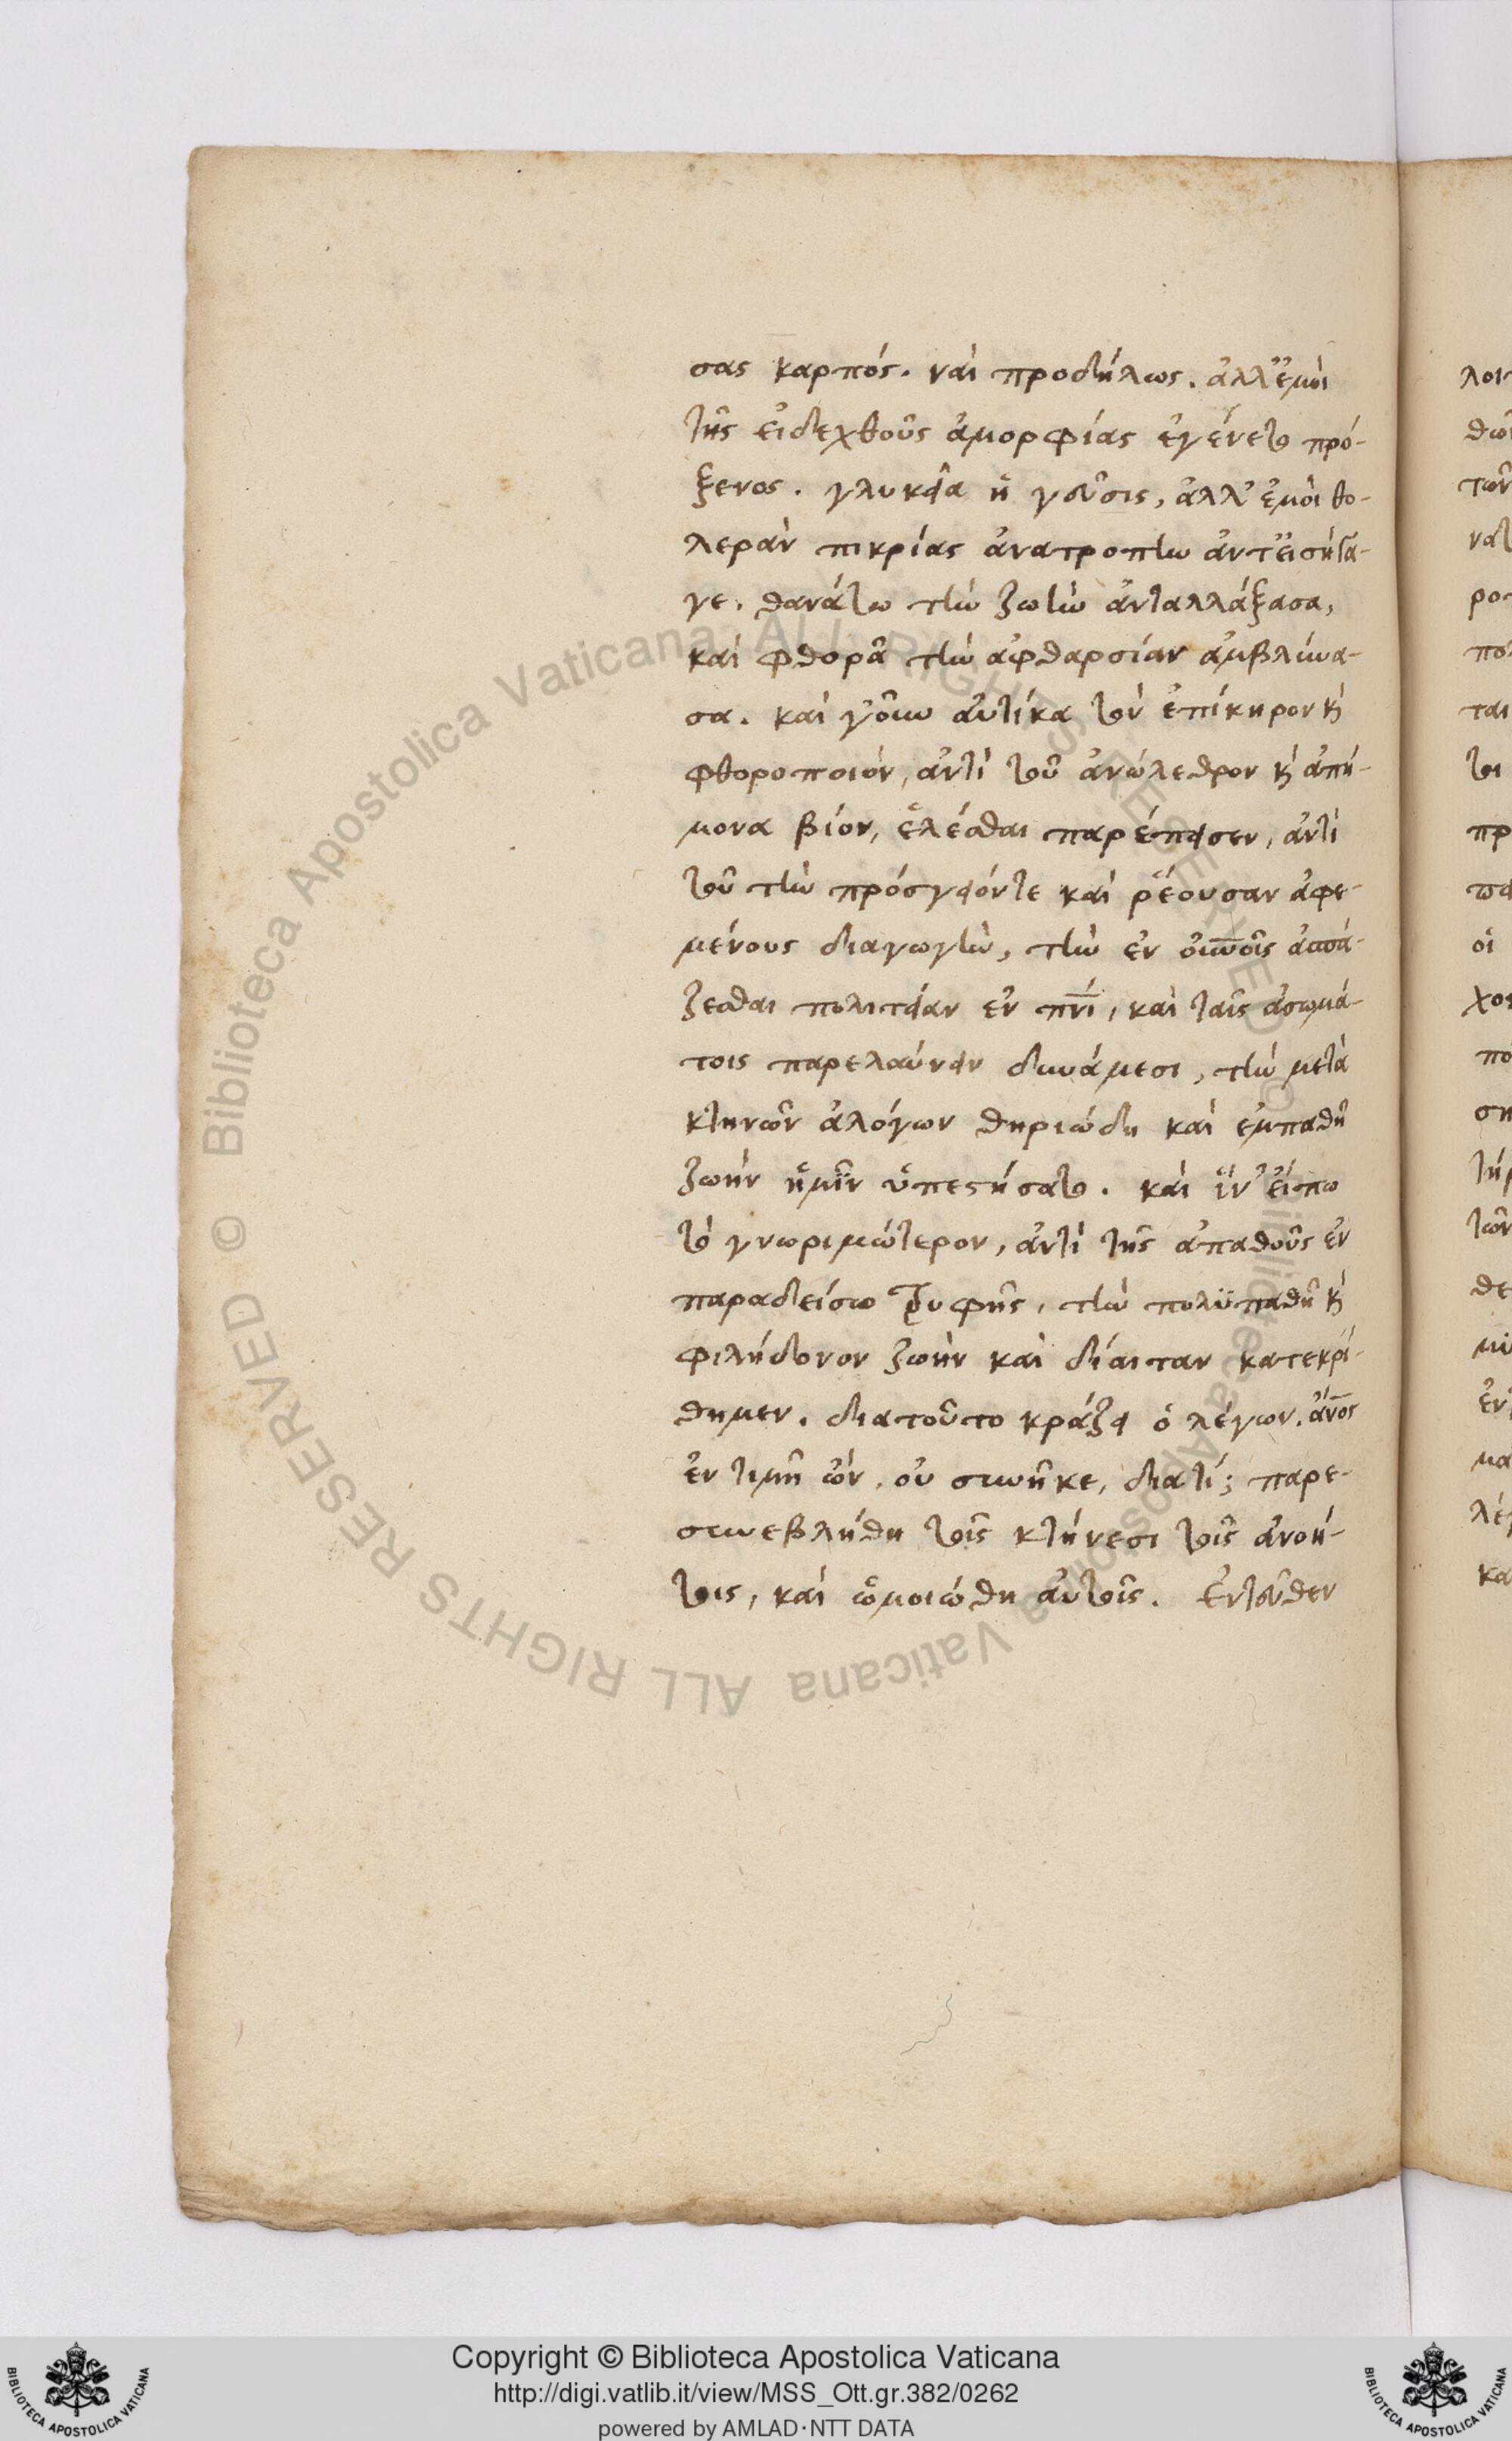 σας καρπός. ναὶ προδήλως. ἀλλ' ἐμοὶ
τῆς εἰδεχθοῦς ἀμορφίας ἐγένετο πρό-
ξενος. γλυκεῖα ἡ γεῦσις, ἀλλ' ἐμοὶ θο-
λερὰν πικρίας ἀνατροπὴν ἀντεισήγα-
γε. θανάτω τὴν ζωὴν ἀνταλλάξασα,
καὶ φθορᾶ τὴν ἀφθαρσίαν ἀμβλύνα-
σα. καὶ γοῦν αὐτίκα τὸν ἐπίκηρον κὶ
φθοροποιόν, ἀντὶ τοῦ ἀνώλεθρον κὶ ἀπή-
μονα βίον, ἑλέσθαι παρέπεισεν, ἀντὶ
τοῦ τὴν πρόσγειόντε καὶ ῥέουσαν ἀφε-
μένους διαγωγὴν, τὴν ἐν οὐνοῖς ἀσπά-
ζεσθαι πολιτείαν ἐν πνί, καὶ ταῖς ἀσωμά-
τοις παρελαύνειν δυνάμεσι, τὴν μετὰ
κτηνῶν ἀλόγων θηριώδη καὶ ἐμπαθῆ
ζωὴν ἡμῖν ὑπεστήσατο. καὶ ἵν' εἴπω
τὸ γνωριμώτερον, ἀντὶ τῆς ἀπαθοῦς ἐν
παραδείσω τρυφῆς, τὴν πολυπαθῆ κὶ
φιλήδονον ζωὴν καὶ δίαιταν κατεκρί-
θημεν. διατοῦτο κράζει ὁ λέγων. ἄνος
ἐν τιμῆ ὤν, οὐ συνῆκε, διατί; παρε-
συνεβλήθη τοῖς κτήνεσι τοῖς ἀνοή-
τοις, καὶ ὡμοιώθη αὐτοῖς. Ἐντεῦθεν
Copyright © Biblioteca Apostolica Vaticana
http://digi.vatlib.it/view/MSS_Ott.gr.382/0262
powered by AMLAD·NTT DATA